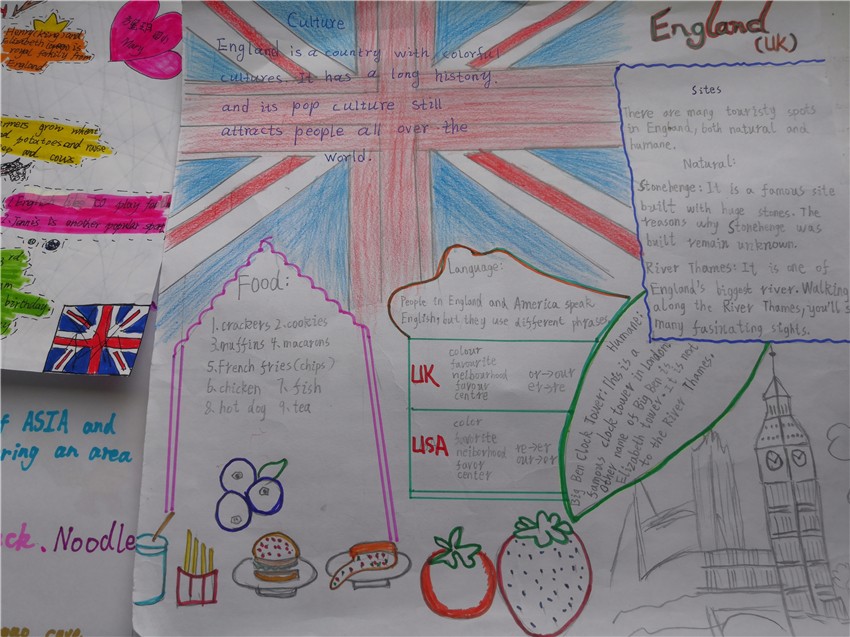 England
(UK)
Culture
England is a country with colorful
cultures. It has a long histony.
and its pop culture still
attracts people all over the
world.
Sites
There are many touristy spots
in England, both natural and
humane.
Natural:
Stonehenge: It is a famous site
built with huge stones. The
reasons why Stonehenge was
built remain unknown.
River Thames: It is one of
England's biggest river. Walking
along the River Thames, you'll s
many fasinating sights.
Food:
1. crackers 2. cookies
3. muffins 4. macarons
5. French fries (chips)
6. chicken 7. fish
8. hot dog 9. tea
Language:
People in England and America speak
English, but they use different phrases.
UK
colour
favourite
neibourhood
favour
centre
or→our
er→re
USA
color
favorite
neiborhood
favor
center
re→er
our→or
Humane:
Big Ben Clock Tower: This is a
famous clock tower in London
Other name of Big Ben is
Elizabeth tower. it is next
to the River Thames.
England
grow
potatoes and raise
and cows
play
is another popular sport
birthday
f ASIA and
ring an area
ck. Noodle